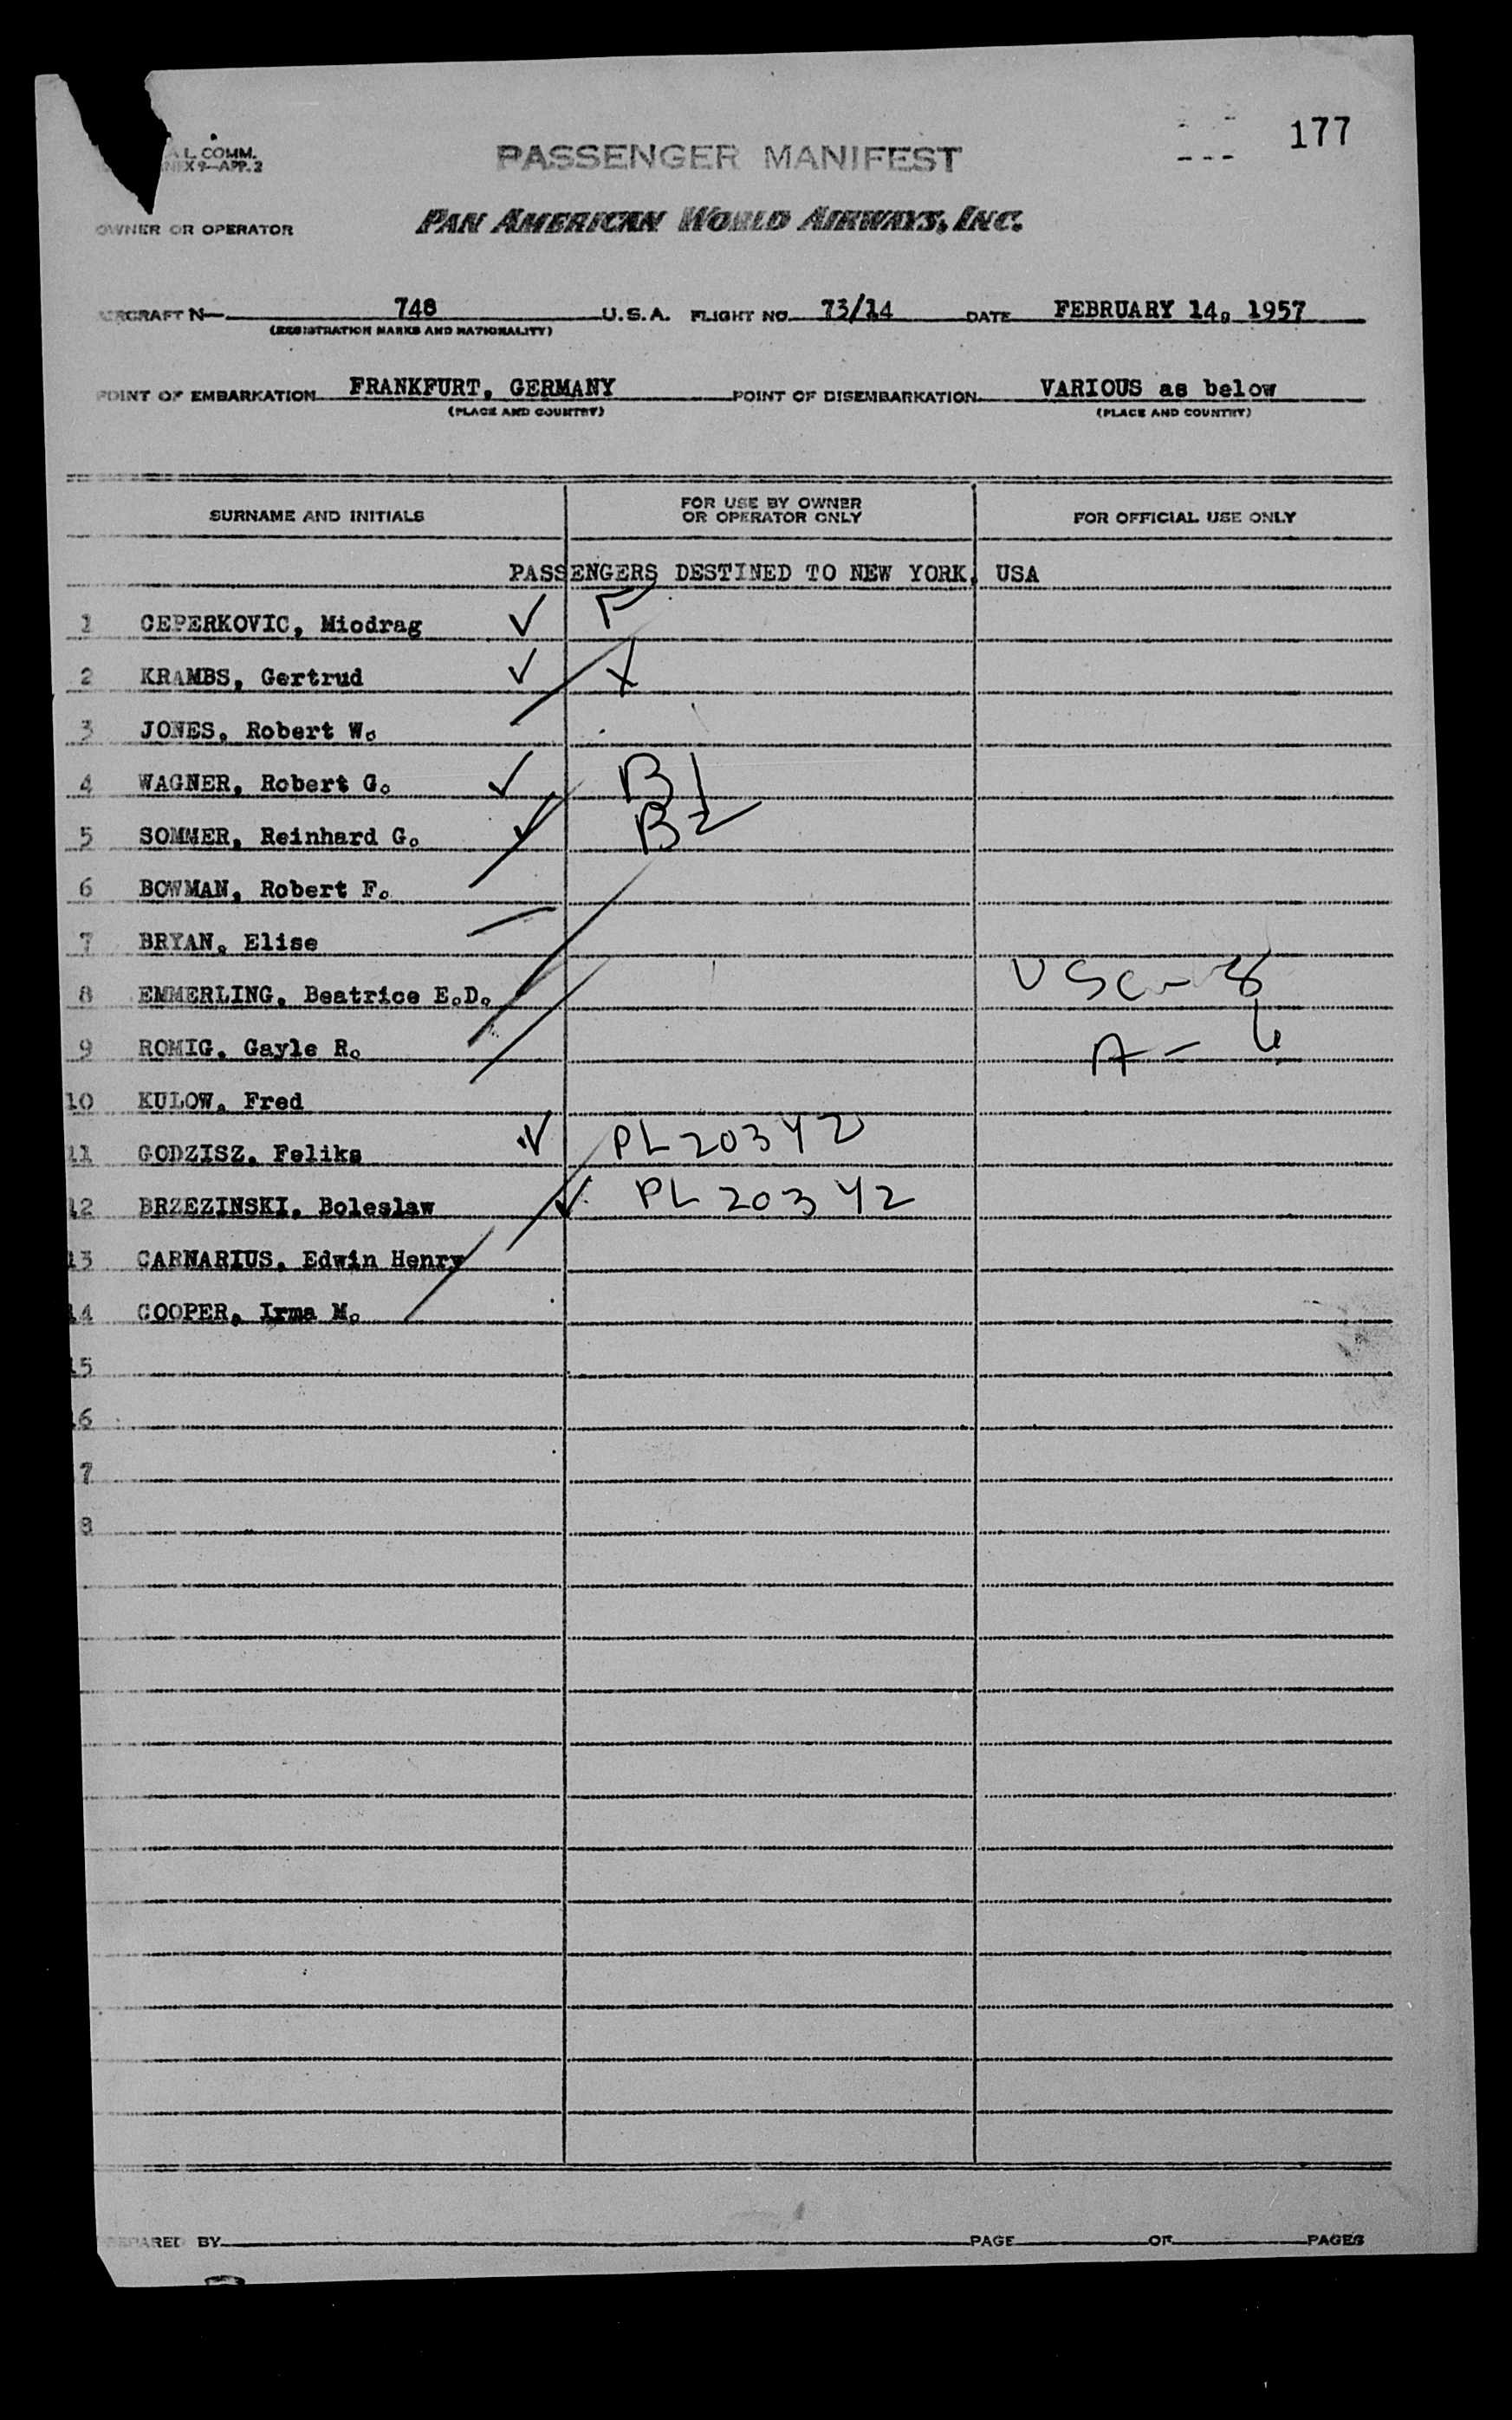 177
A L. COMM.
NEX 9—APP. 2
PASSENGER MANIFEST
OWNER OR OPERATOR PAN AMERICAN WORLD AIRWAYS, INC.
AIRCRAFT N— 748 U.S.A. FLIGHT NO. 73/14 DATE FEBRUARY 14, 1957
(REGISTRATION MARKS AND NATIONALITY)
POINT OF EMBARKATION FRANKFURT, GERMANY POINT OF DISEMBARKATION VARIOUS as below
(PLACE AND COUNTRY) (PLACE AND COUNTRY)
SURNAME AND INITIALS FOR USE BY OWNER OR OPERATOR ONLY FOR OFFICIAL USE ONLY
PASSENGERS DESTINED TO NEW YORK, USA
1 CEPERKOVIC, Miodrag ✓ F
2 KRAMBS, Gertrud ✓ X
3 JONES, Robert W.
4 WAGNER, Robert G. ✓ B1
5 SOMMER, Reinhard G. ✓ B2
6 BOWMAN, Robert F.
7 BRYAN, Elise
8 EMMERLING, Beatrice E.D. USC - 8
9 ROMIG, Gayle R. A - 6
10 KULOW, Fred
11 GODZISZ, Feliks ✓ PL 203 Y2
12 BRZEZINSKI, Boleslaw ✓ PL 203 Y2
13 CARNARIUS, Edwin Henry
14 COOPER, Irma M.
15
16
7
8
PREPARED BY PAGE OF PAGES